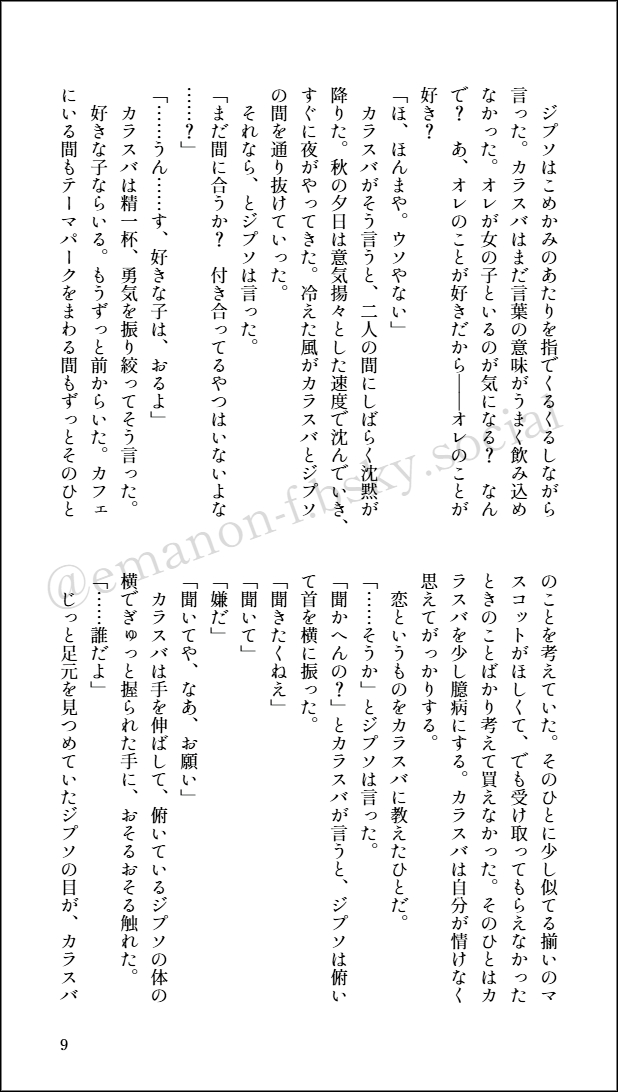 ジプソはこめかみのあたりを指でくるくるしながら
言った。カラスバはまだ言葉の意味がうまく飲み込め
なかった。オレが女の子といるのが気になる？　なん
で？　あ、オレのことが好きだから――オレのことが
好き？
「ほ、ほんまや。ウソやない」
　カラスバがそう言うと、二人の間にしばらく沈黙が
降りた。秋の夕日は意気揚々とした速度で沈んでいき、
すぐに夜がやってきた。冷えた風がカラスバとジプソ
の間を通り抜けていった。
　それなら、とジプソは言った。
「まだ間に合うか？　付き合ってるやつはいないよな
……？」
「……うん……す、好きな子は、おるよ」
　カラスバは精一杯、勇気を振り絞ってそう言った。
　好きな子ならいる。もうずっと前からいた。カフェ
にいる間もテーマパークをまわる間もずっとそのひと
のことを考えていた。そのひとに少し似てる揃いのマ
スコットがほしくて、でも受け取ってもらえなかった
ときのことばかり考えて買えなかった。そのひとはカ
ラスバを少し臆病にする。カラスバは自分が情けなく
思えてがっかりする。
　恋というものをカラスバに教えたひとだ。
「……そうか」とジプソは言った。
「聞かへんの？」とカラスバが言うと、ジプソは俯い
て首を横に振った。
「聞きたくねえ」
「聞いて」
「嫌だ」
「聞いてや、なあ、お願い」
　カラスバは手を伸ばして、俯いているジプソの体の
横でぎゅっと握られた手に、おそるおそる触れた。
「……誰だよ」
　じっと足元を見つめていたジプソの目が、カラスバ
9
@emanon-f.bsky.social